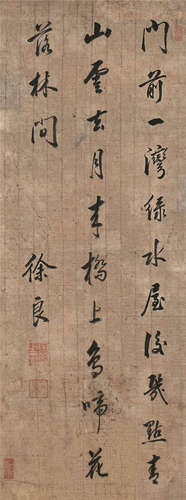 門前一灣綠水屋後幾點青
山雲去月來橋上鳥啼花
落林間
徐良